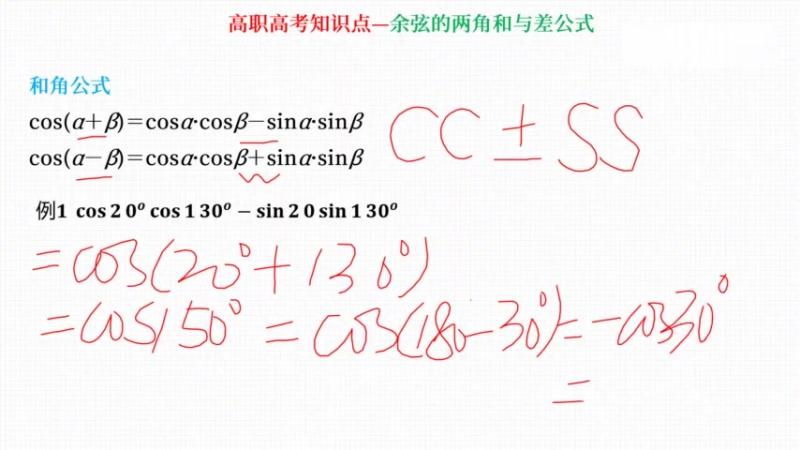 高职高考知识点—余弦的两角和与差公式
和角公式
cos(α+β)=cosα·cosβ−sinα·sinβ
cos(α−β)=cosα·cosβ+sinα·sinβ
CC ± SS
例1 cos 2 0º cos 1 30º − sin 2 0 sin 1 30º
= cos(20°+130°)
= cos150° = cos(180−30°) = −cos30°
=